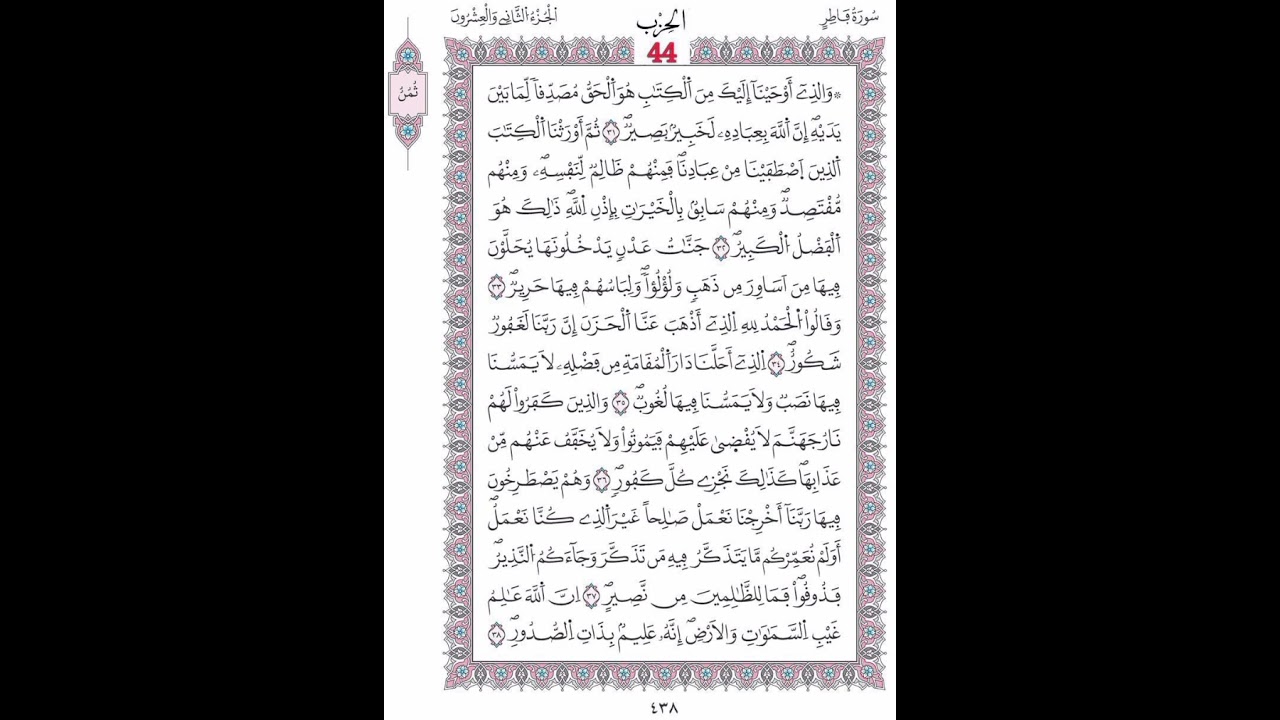 سُورَةُ فَاطِرٍ
الحِزْب
الْجُزْءُ الثَّانِي وَالْعِشْرُونَ
44
ثُمُنُ
۞ وَالذِےٓ أَوْحَيْنَآ إِلَيْكَ مِنَ اَ۬لْكِتَٰبِ هُوَ اَ۬لْحَقُّ مُصَدِّقاٗ لِّمَا بَيْنَ
يَدَيْهِۖ إِنَّ اَ۬للَّهَ بِعِبَادِهِۦ لَخَبِيرُۢ بَصِيرٞۖ ٣١ ثُمَّ أَوْرَثْنَا اَ۬لْكِتَٰبَ
اَ۬لذِينَ اَ۪صْطَفَيْنَا مِنْ عِبَادِنَاۖ فَمِنْهُمْ ظَالِمٞ لِّنَفْسِهِۦۖ وَمِنْهُم
مُّقْتَصِدٞۖ وَمِنْهُمْ سَابِقُۢ بِالْخَيْرَٰتِ بِإِذْنِ اِ۬للَّهِۖ ذَٰلِكَ هُوَ
اَ۬لْفَضْلُ اُ۬لْكَبِيرُۖ ٣٢ جَنَّٰتُ عَدْنٖ يَدْخُلُونَهَا يُحَلَّوْنَ
فِيهَا مِنَ اَسَاوِرَ مِن ذَهَبٖ وَلُؤْلُؤاٗۖ وَلِبَاسُهُمْ فِيهَا حَرِيرٞۖ ٣٣
وَقَالُواْ اُ۬لْحَمْدُ لِلهِ اِ۬لذِےٓ أَذْهَبَ عَنَّا اَ۬لْحَزَنَ إِنَّ رَبَّنَا لَغَفُورٞ
شَكُورٌۖ ٣٤ اِ۬لذِےٓ أَحَلَّنَا دَارَ اَ۬لْمُقَامَةِ مِن فَضْلِهِۦ لَا يَمَسُّنَا
فِيهَا نَصَبٞ وَلَا يَمَسُّنَا فِيهَا لُغُوبٞۖ ٣٥ وَالذِينَ كَفَرُواْ لَهُمْ
نَارُ جَهَنَّمَ لَا يُقْضَىٰ عَلَيْهِمْ فَيَمُوتُواْ وَلَا يُخَفَّفُ عَنْهُم مِّنْ
عَذَابِهَاۖ كَذَٰلِكَ نَجْزِے كُلَّ كَفُورٖۖ ٣٦ وَهُمْ يَصْطَرِخُونَ
فِيهَا رَبَّنَآ أَخْرِجْنَا نَعْمَلْ صَٰلِحاً غَيْرَ اَ۬لذِے كُنَّا نَعْمَلُۖ
أَوَلَمْ نُعَمِّرْكُم مَّا يَتَذَكَّرُ فِيهِ مَن تَذَكَّرَ وَجَآءَكُمُ اُ۬لنَّذِيرُۖ
فَذُوقُواْ فَمَا لِلظَّٰلِمِينَ مِن نَّصِيرٍۖ ٣٧ اِنَّ اَ۬للَّهَ عَٰلِمُ
غَيْبِ اِ۬لسَّمَٰوَٰتِ وَالَارْضِۖ إِنَّهُۥ عَلِيمُۢ بِذَاتِ اِ۬لصُّدُورِۖ ٣٨
٤٣٨